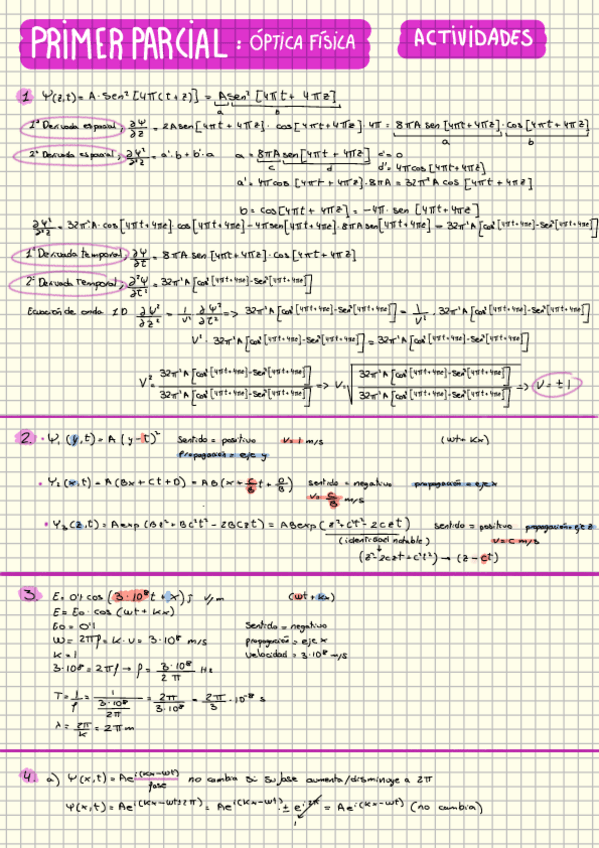 PRIMER PARCIAL : ÓPTICA FÍSICA
ACTIVIDADES
1. Ψ(z,t) = A·Sen² [4π(t+z)] = A sen² [4πt + 4πz]
a b
1ª Derivada espacial; ∂Ψ/∂z = 2A sen [4πt + 4πz] · cos [4πt + 4πz] · 4π = 8πA sen [4πt + 4πz] · cos [4πt + 4πz]
a b
2ª Derivada espacial; ∂Ψ²/∂²z = a'·b + b'·a a = 8πA sen [4πt + 4πz] c' = 0
c d d' = 4π cos [4πt + 4πz]
a' = 4π cos [4πt + 4πz] · 8πA = 32π²A cos [4πt + 4πz]
b = cos [4πt + 4πz] = -4π · sen [4πt + 4πz]
∂Ψ²/∂²z = 32π²A · cos [4πt + 4πz] · cos [4πt + 4πz] - 4π sen [4πt + 4πz] · 8πA sen [4πt + 4πz] = 32π²A [cos² [4πt + 4πz] - Sen² [4πt + 4πz]]
1ª Derivada temporal; ∂Ψ/∂t = 8πA sen [4πt + 4πz] · cos [4πt + 4πz]
2ª Derivada Temporal; ∂²Ψ/∂t² = 32π²A [cos² [4πt + 4πz] - Sen² [4πt + 4πz]]
Ecuación de onda 1D ∂Ψ²/∂z² = 1/v² ∂Ψ²/∂t² => 32π²A [cos² [4πt + 4πz] - Sen² [4πt + 4πz]] = 1/v² · 32π²A [cos² [4πt + 4πz] - Sen² [4πt + 4πz]]
V² · 32π²A [cos² [4πt + 4πz] - Sen² [4πt + 4πz]] = 32π²A [cos² [4πt + 4πz] - Sen² [4πt + 4πz]]
V² = 32π²A [cos² [4πt + 4πz] - Sen² [4πt + 4πz]] / 32π²A [cos² [4πt + 4πz] - Sen² [4πt + 4πz]] => V = √(32π²A [cos² [4πt + 4πz] - Sen² [4πt + 4πz]] / 32π²A [cos² [4πt + 4πz] - Sen² [4πt + 4πz]]) => V = ±1
2. · Ψ₁ (y,t) = A (y-t)² Sentido = positivo v = 1 m/s (wt + kx)
Propagación = eje y
· Ψ₂ (x,t) = A (Bx + Ct + D) = AB (x + C/B t + D/B) sentido = negativo propagación = eje x
v = C/B m/s
· Ψ₃ (z,t) = A exp (Bz² + BC²t² - 2BCzt) = AB exp (z² + C²t² - 2czt) sentido = positivo propagación = eje z
(identidad notable) v = c m/s
(z² - 2czt + c²t²) → (z - ct)
3. E = 0'1 cos (3·10⁸t + x) ĵ V/m (wt + kx)
E = E₀ · cos (wt + kx)
E₀ = 0'1 Sentido = negativo
W = 2πf = K·v = 3·10⁸ m/s propagación = eje x
K = 1 Velocidad = 3·10⁸ m/s
3·10⁸ = 2πf → f = 3·10⁸/2π Hz
T = 1/f = 1/(3·10⁸/2π) = 2π/3·10⁸ = 2π/3 · 10⁻⁸ s
λ = 2π/K = 2π m
4. a) Ψ(x,t) = Ae^i(Kx-wt) no cambia si su fase aumenta/disminuye a 2π
fase
Ψ(x,t) = Ae^i(Kx-wt±2π) = Ae^i(Kx-wt) · ± e^i2π = Ae^i(Kx-wt) (no cambia)
1